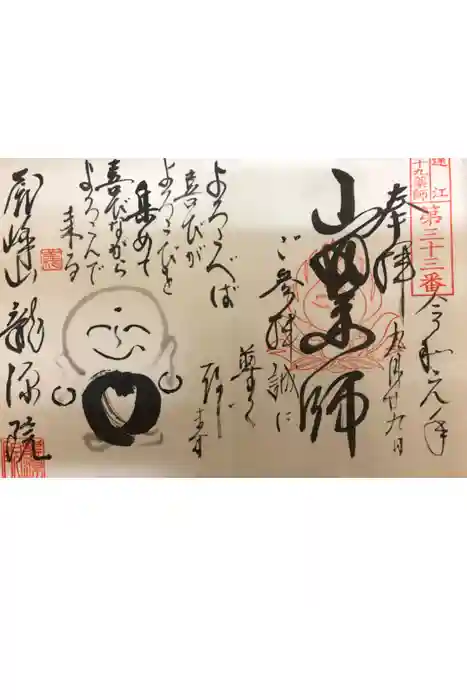 遠江
四十九薬師
第三十三番
令和元年
九月廿九日
奉拝
山四薬師
ご参拝誠に
尊く
存じ
ます
よろこべば
喜びが
よろこびを
集めて
喜びながら
よろこんで
来る
龍源院